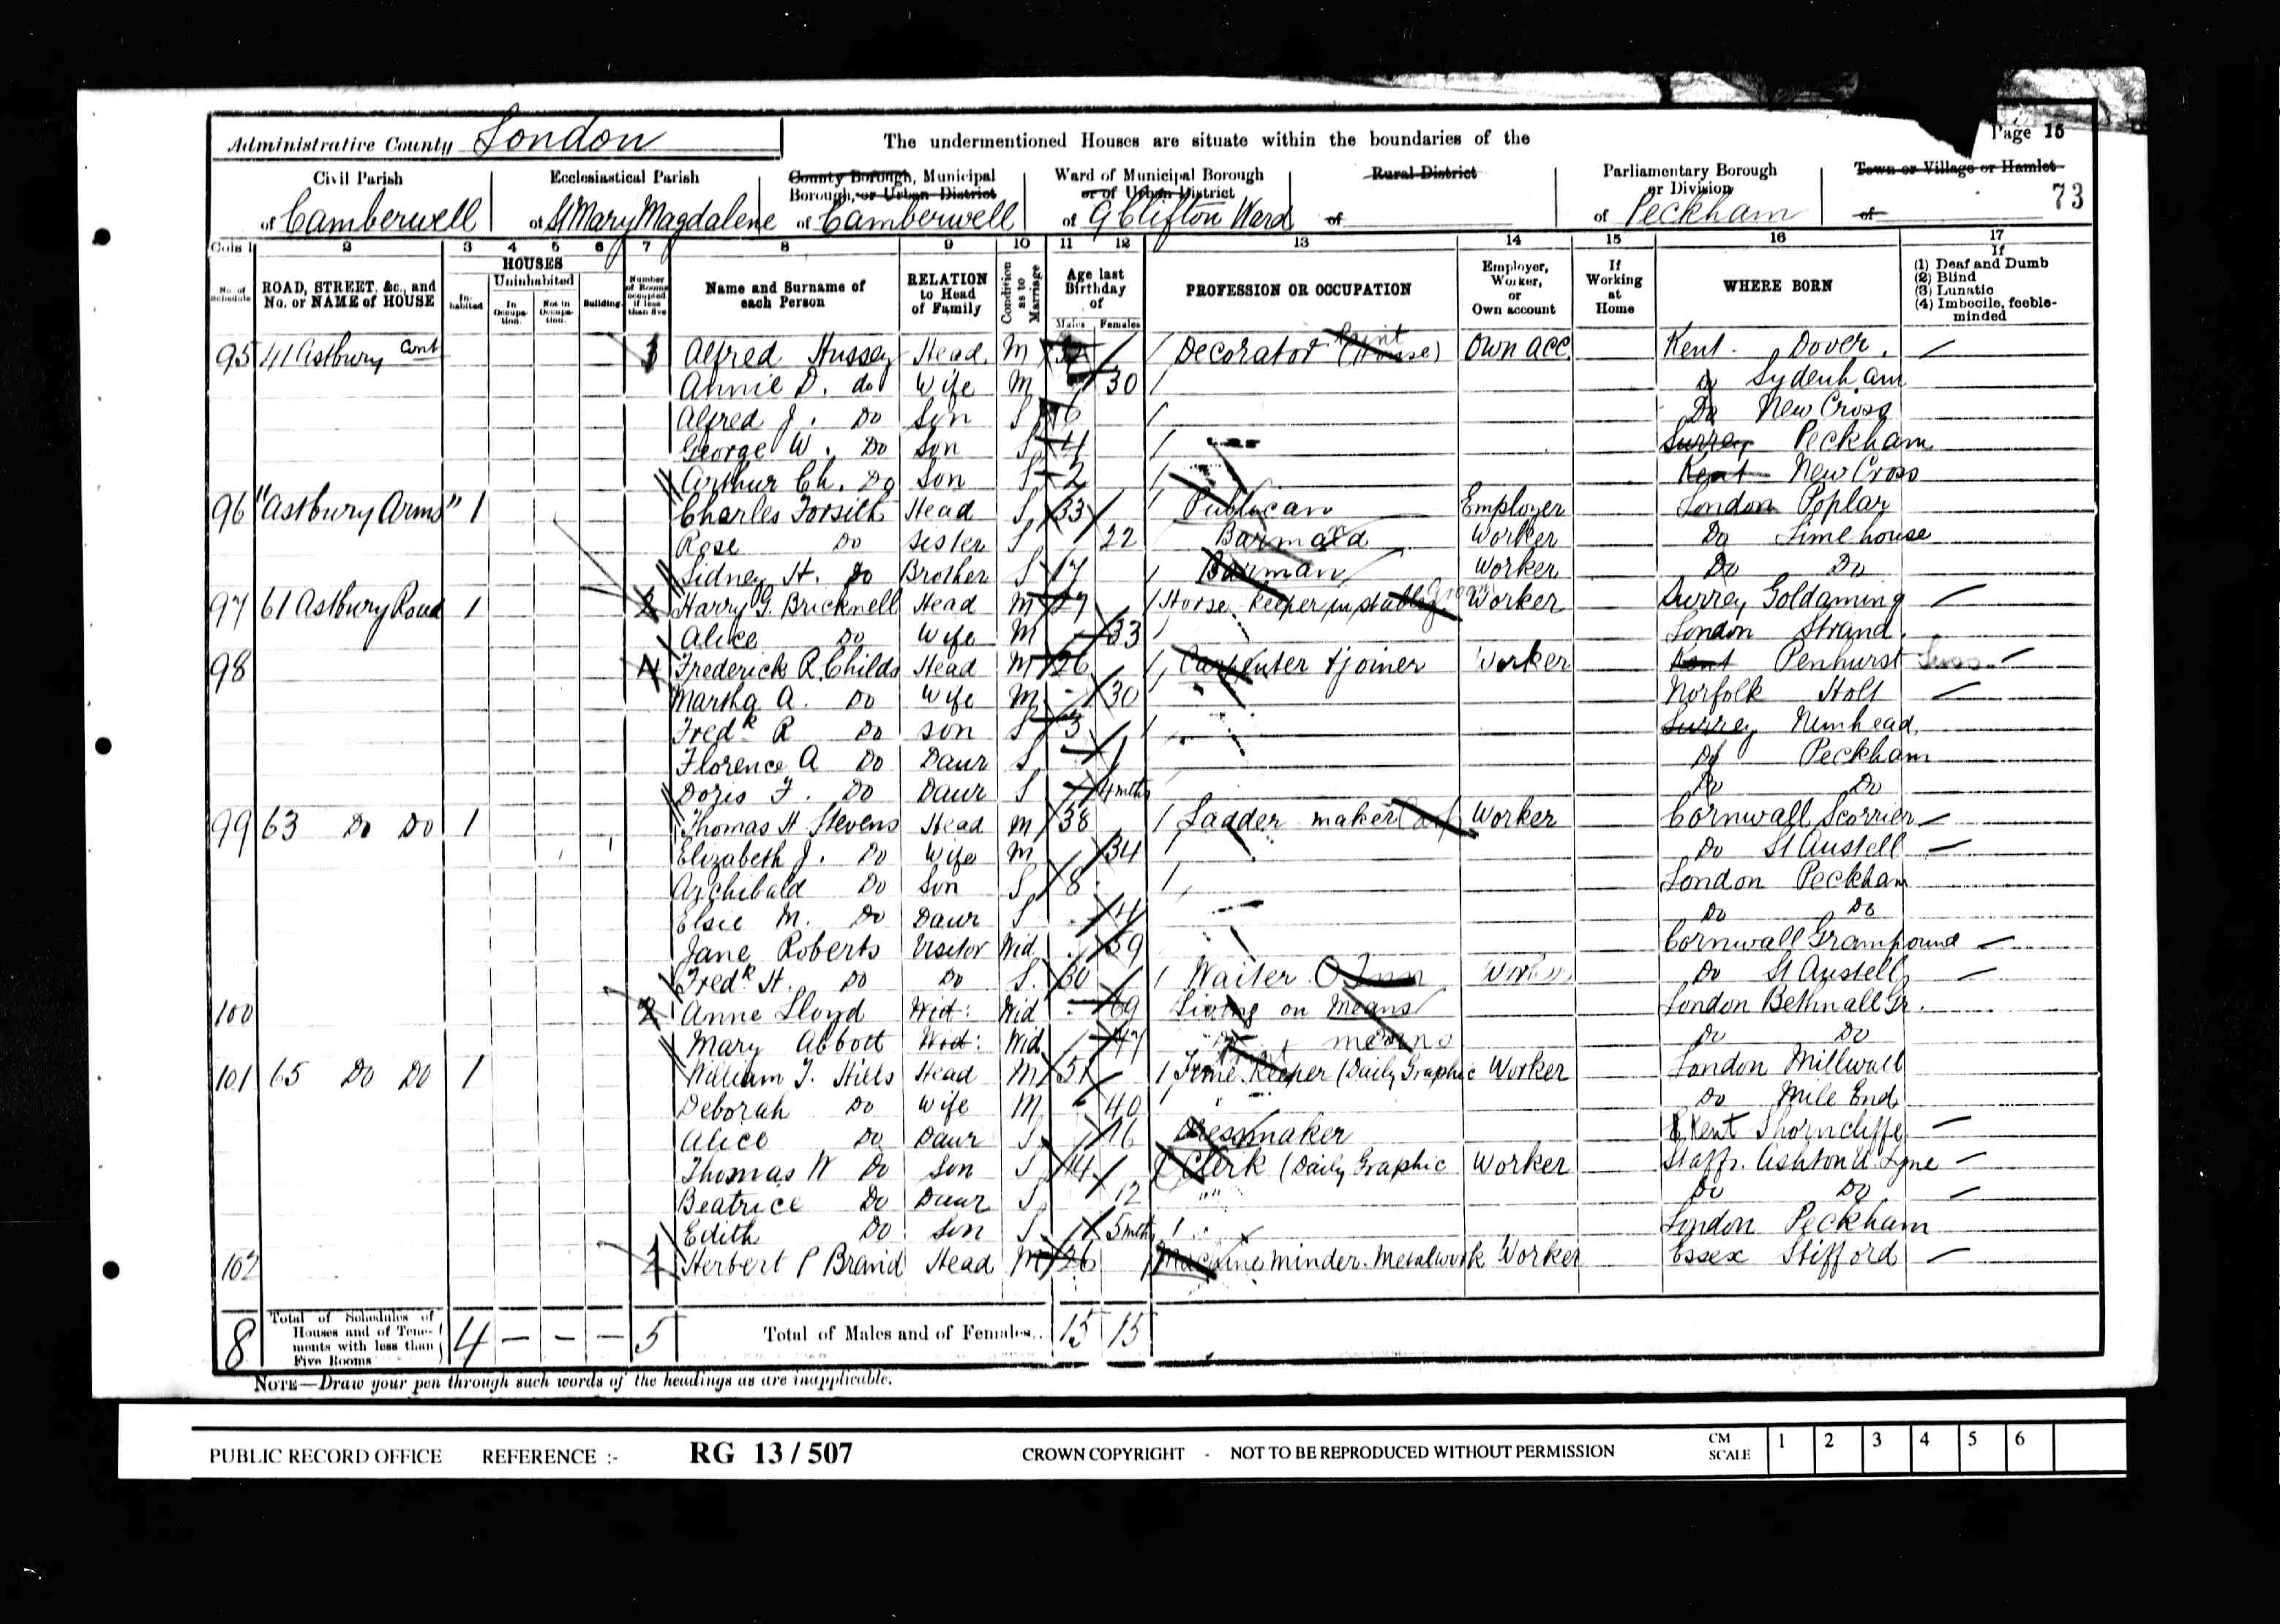 Page 15
Administrative County London
The undermentioned Houses are situate within the boundaries of the
Civil Parish of Camberwell
Ecclesiastical Parish of St Mary Magdalene
County Borough, Municipal Borough, or Urban District of Camberwell
Ward of Municipal Borough or of Urban District of 9 Clifton Ward
Rural District of
Parliamentary Borough or Division of Peckham
Town or Village or Hamlet of
73
Cols 1 2 3 4 5 6 7 8 9 10 11 12 13 14 15 16 17
No. of Schedule
ROAD, STREET, &c., and No. or NAME of HOUSE
HOUSES
Inhabited
Uninhabited
In Occupation.
Not in Occupation.
Building
Number of Rooms occupied if less than five
Name and Surname of each Person
RELATION to Head of Family
Condition as to Marriage
Age last Birthday of
Males Females
PROFESSION OR OCCUPATION
Employer, Worker, or Own account
If Working at Home
WHERE BORN
If
(1) Deaf and Dumb
(2) Blind
(3) Lunatic
(4) Imbecile, feeble-minded
95 41 Astbury Cont 3 Alfred Hussey Head M Decorator (House) Paint Own acc Kent Dover
Annie D. do Wife M 30 Do Sydenham
Alfred J. Do Son S 6 Do New Cross
George W. Do Son S 4 Surrey Peckham
Arthur Ch. Do Son S 2 Kent New Cross
96 "Astbury Arms" 1 Charles Forsith Head S 33 Publican Employer London Poplar
Rose Do Sister S 22 Barmaid Worker Do Limehouse
Sidney H. Do Brother S 17 Barman Worker Do Do
97 61 Astbury Road 1 2 Harry G. Bricknell Head M 27 Horse Keeper in stables Groom Worker Surrey Goldaming
Alice Do Wife M 33 London Strand.
98 4 Frederick R. Childs Head M 26 Carpenter & joiner Worker Kent Penhurst
Martha A. Do Wife M 30 Norfolk Holt
Fredk R Do Son S 3 Surrey Nunhead
Florence A Do Daur S 1 Do Peckham
Doris F. Do Daur S 4 mths Do Do
99 63 Do Do 1 Thomas H Stevens Head M 38 Ladder maker Worker Cornwall Scorrier
Elizabeth J. Do Wife M 34 Do St Austell
Archibald Do Son S 8 London Peckham
Elsie M. Do Daur S 4 Do Do
Jane Roberts Visitor Wid 59 Cornwall Grampound
Fredk H. Do Do S. 30 Waiter Inn Worker Do St Austell
100 2 Anne Lloyd Wid: Wid 69 Living on Means London Bethnall Gr.
Mary Abbott Wid: Wid 47 Do means Do Do
101 65 Do Do 1 William T. Hills Head M 51 Time Keeper (Daily Graphic Worker London Millwall
Deborah Do Wife M 40 Do Mile End
Alice Do Daur S. 16 Dressmaker Kent Shorncliffe
Thomas W Do Son S 14 Clerk (Daily Graphic Worker Staffs. Ashton U. Lyne
Beatrice Do Daur S 12 Do Do
Edith Do Son S. 5 mths London Peckham
102 2 Herbert P Braid Head M 26 Machine minder. Metalwork Worker Essex Stifford
8 Total of Schedules of Houses and of Tenements with less than Five Rooms 4 — — — 5 Total of Males and of Females... 15 15
NOTE—Draw your pen through such words of the headings as are inapplicable.
PUBLIC RECORD OFFICE REFERENCE :- RG 13 / 507 CROWN COPYRIGHT - NOT TO BE REPRODUCED WITHOUT PERMISSION CM SCALE 1 2 3 4 5 6